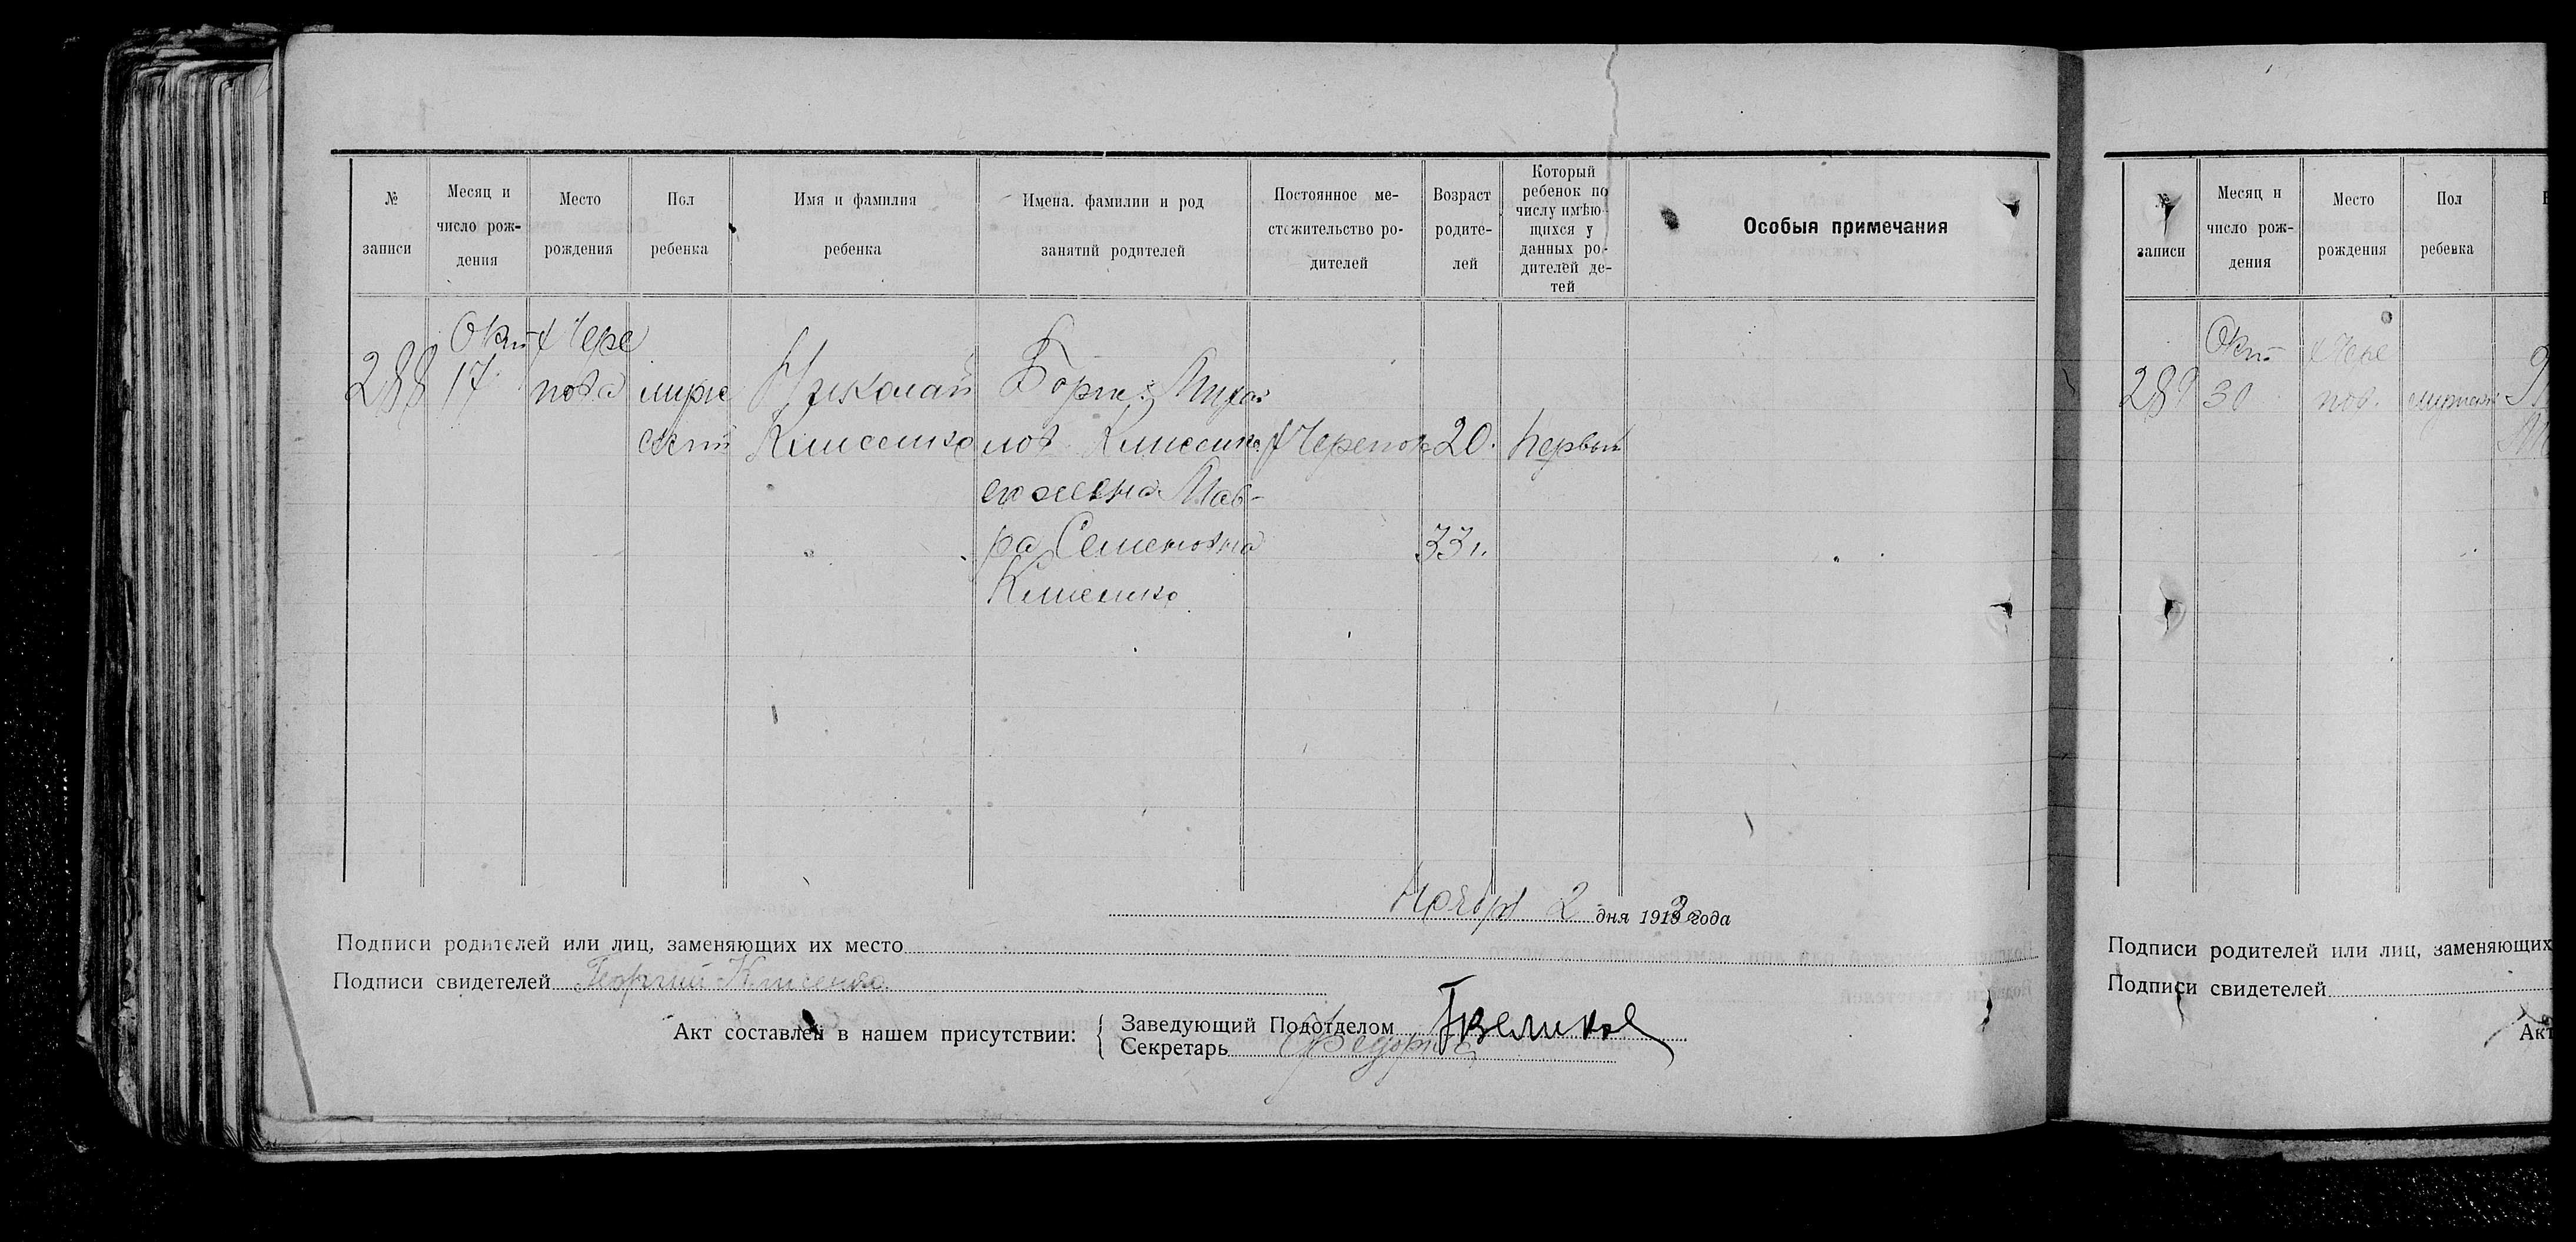 № записи
Месяц и число рож-дения
Место рождения
Пол ребенка
Имя и фамилия ребенка
Имена. фамилии и род занятий родителей
Постоянное ме-стожительство ро-дителей
Возраст родите-лей
Который ребенок по числу имѣю-щихся у данных ро-дителей де-тей
Особыя примечания
288
Окт
17
х Чере
пова
муже
ский
Николай
Клисенко
Михаи
лов Клисенко
его жена Мав-
ра Семеновна
Клисенко
х Черепов
20.
33
первый
Ноября 2 дня 1919 года
Подписи родителей или лиц, заменяющих их место
Подписи свидетелей Георгий Клисенко
Акт составлен в нашем присутствии:
Заведующий Подотделом
Секретарь
№ записи
Месяц и число рож-дения
Место рождения
Пол ребенка
289
Окт
30
Чере
пов.
Подписи родителей или лиц, заменяющих
Подписи свидетелей
Акт